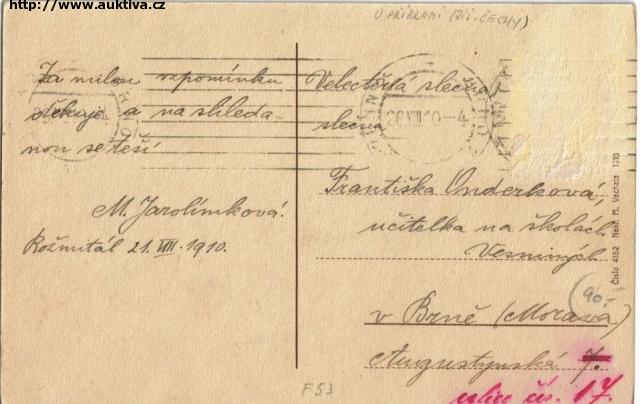 http://www.auktiva.cz
U PŘÍBRAMI (JIŽ. ČECHY)
Za milou vzpomínku
děkuje a na shleda-
nou se těší
M. Jarolímková.
Rožmitál 21. VIII. 1910.
Velectěná slečna
slečna
26 VIII 10 - 4
Františka Onderková,
učitelka na školách
Vesniných
v Brně (Morava)
Augustynská 7.
ulice čís. 17.
90,-
F53
Číslo 4152 Nakl. M. Vachata 1910